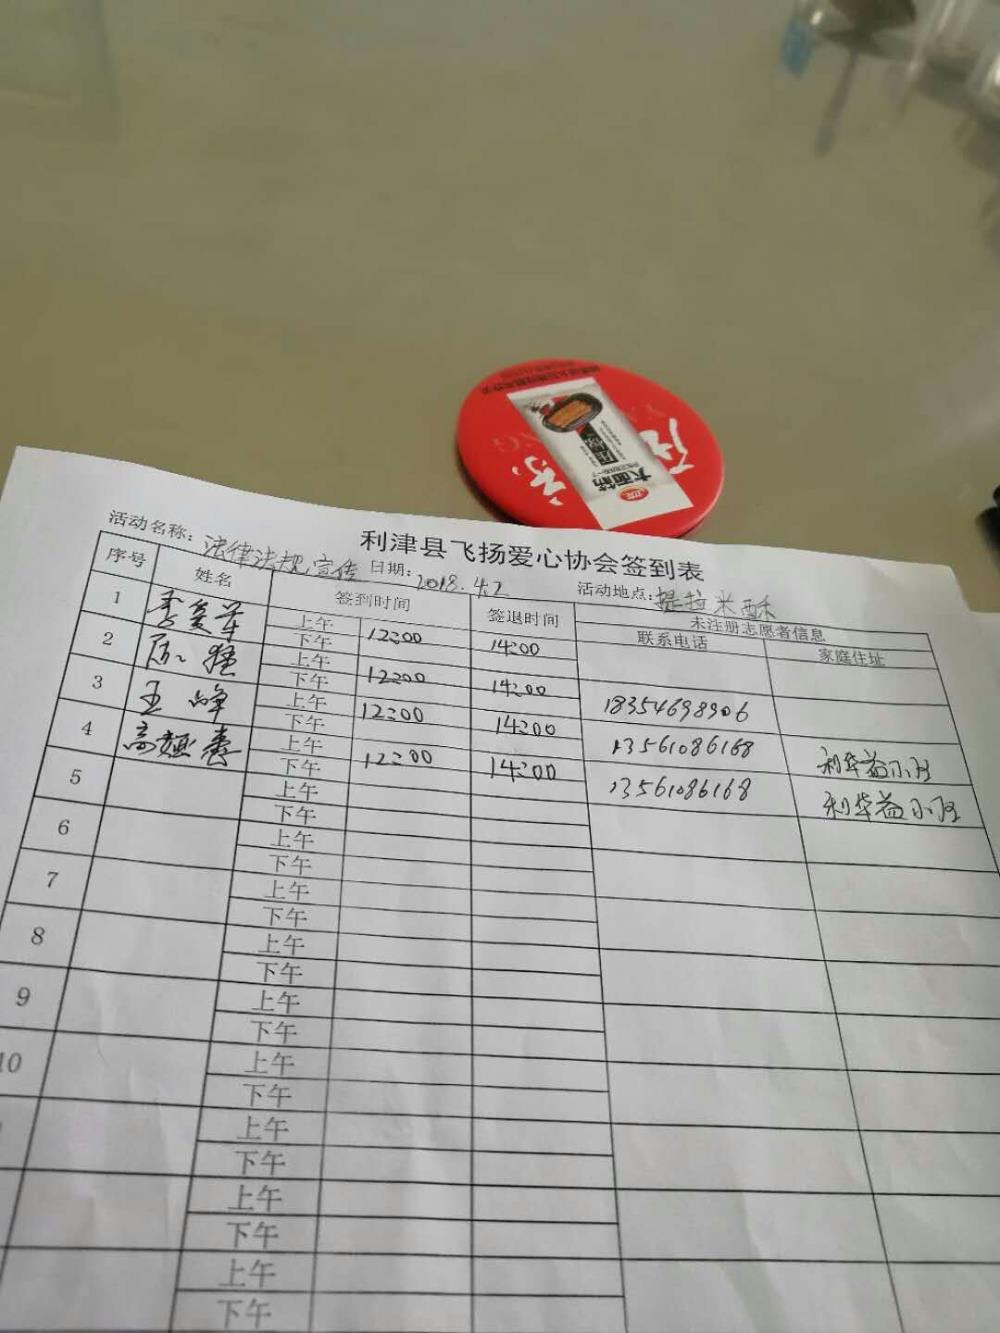 利津县飞扬爱心协会签到表
活动名称: 法律法规宣传 日期: 2018.4.2 活动地点: 提拉米酥
序号 姓名 签到时间 签退时间 未注册志愿者信息
联系电话 家庭住址
1 上午
下午 12:00 14:00
2 上午
下午 12:00 14:00 18354698906
3 王峰 上午
下午 12:00 14:00 13561086168 利华益小区
4 上午
下午 12:00 14:00 13561086168 利华益小区
5 上午
下午
6 上午
下午
7 上午
下午
8 上午
下午
9 上午
下午
10 上午
下午
上午
下午
上午
下午
上午
下午
大面筋